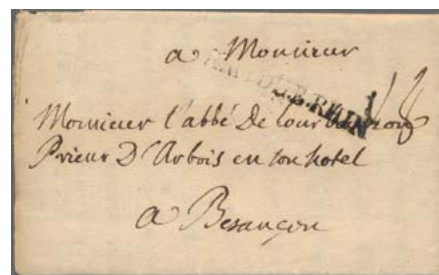 a Monsieur
Monsieur l'abbé De
Prieur D'Arbois en son hotel
a Besançon